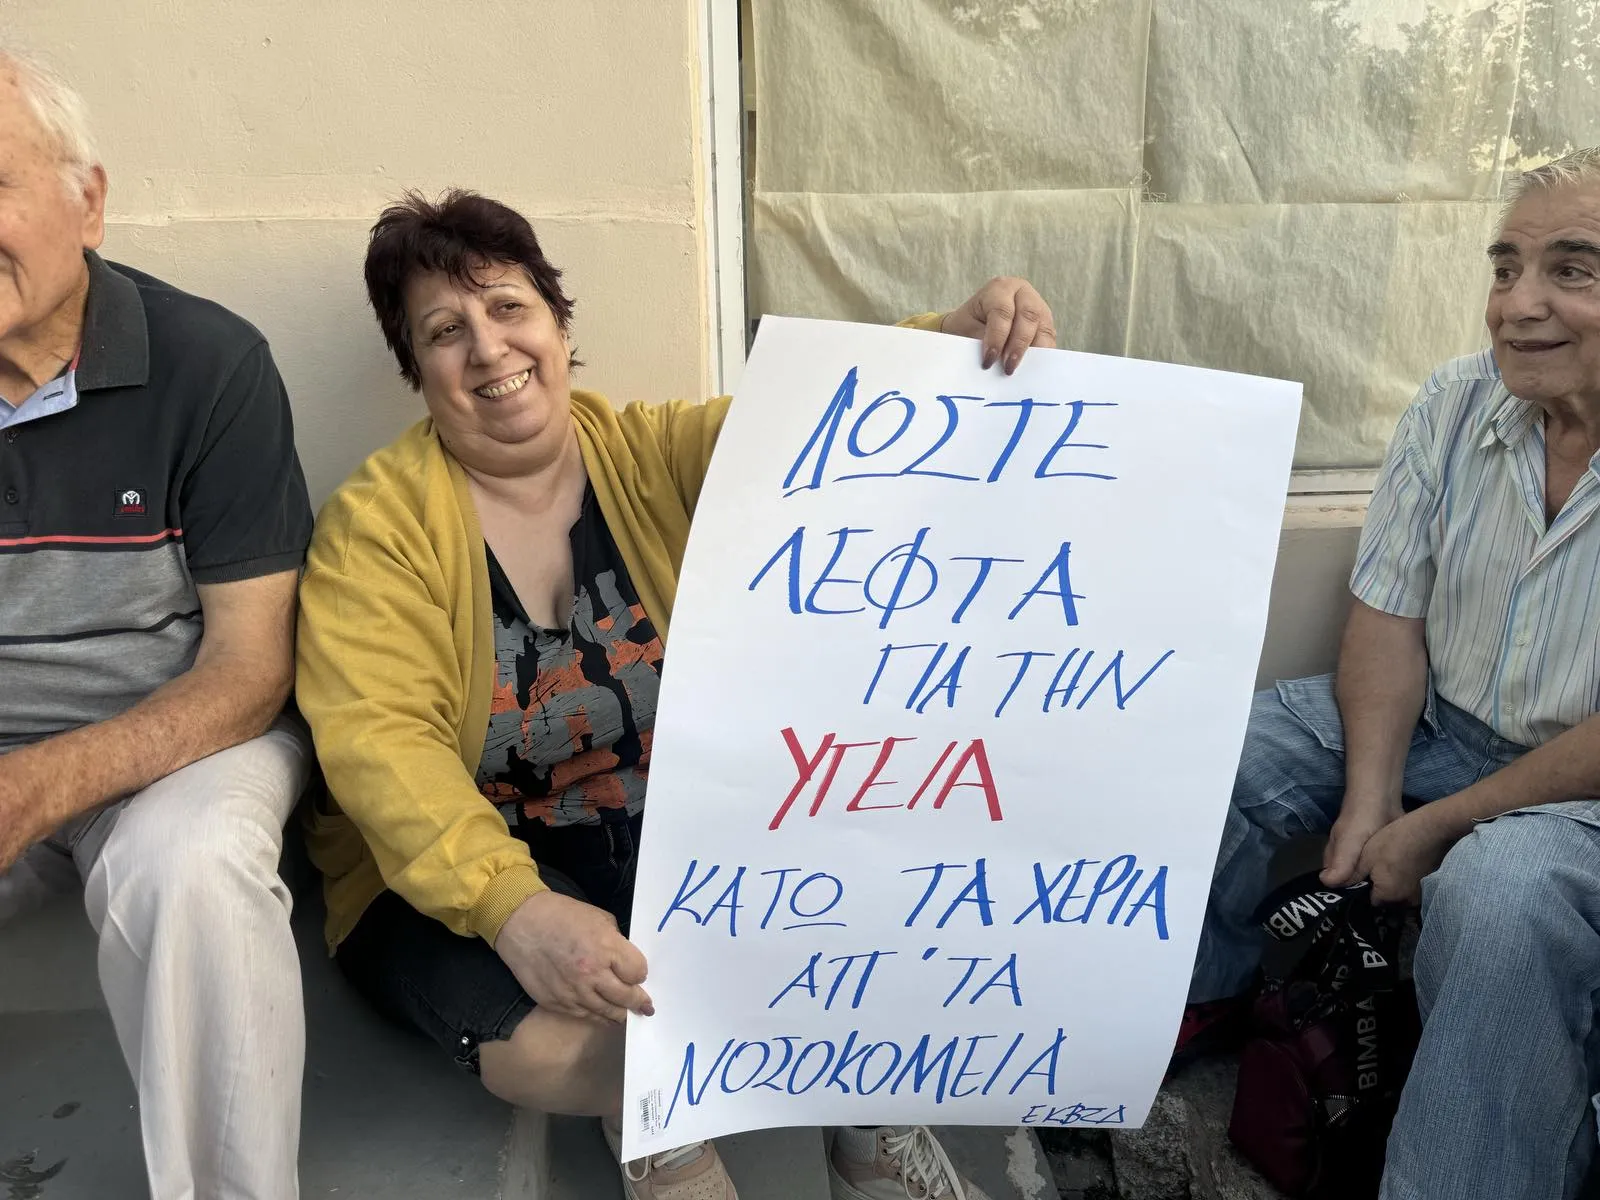 ΔΩΣΤΕ
ΛΕΦΤΑ
ΓΙΑ ΤΗΝ
ΥΓΕΙΑ
ΚΑΤΩ ΤΑ ΧΕΡΙΑ
ΑΠ' ΤΑ
ΝΟΣΟΚΟΜΕΙΑ
ΕΚΒΖΔ
BIMBA
BIMBA